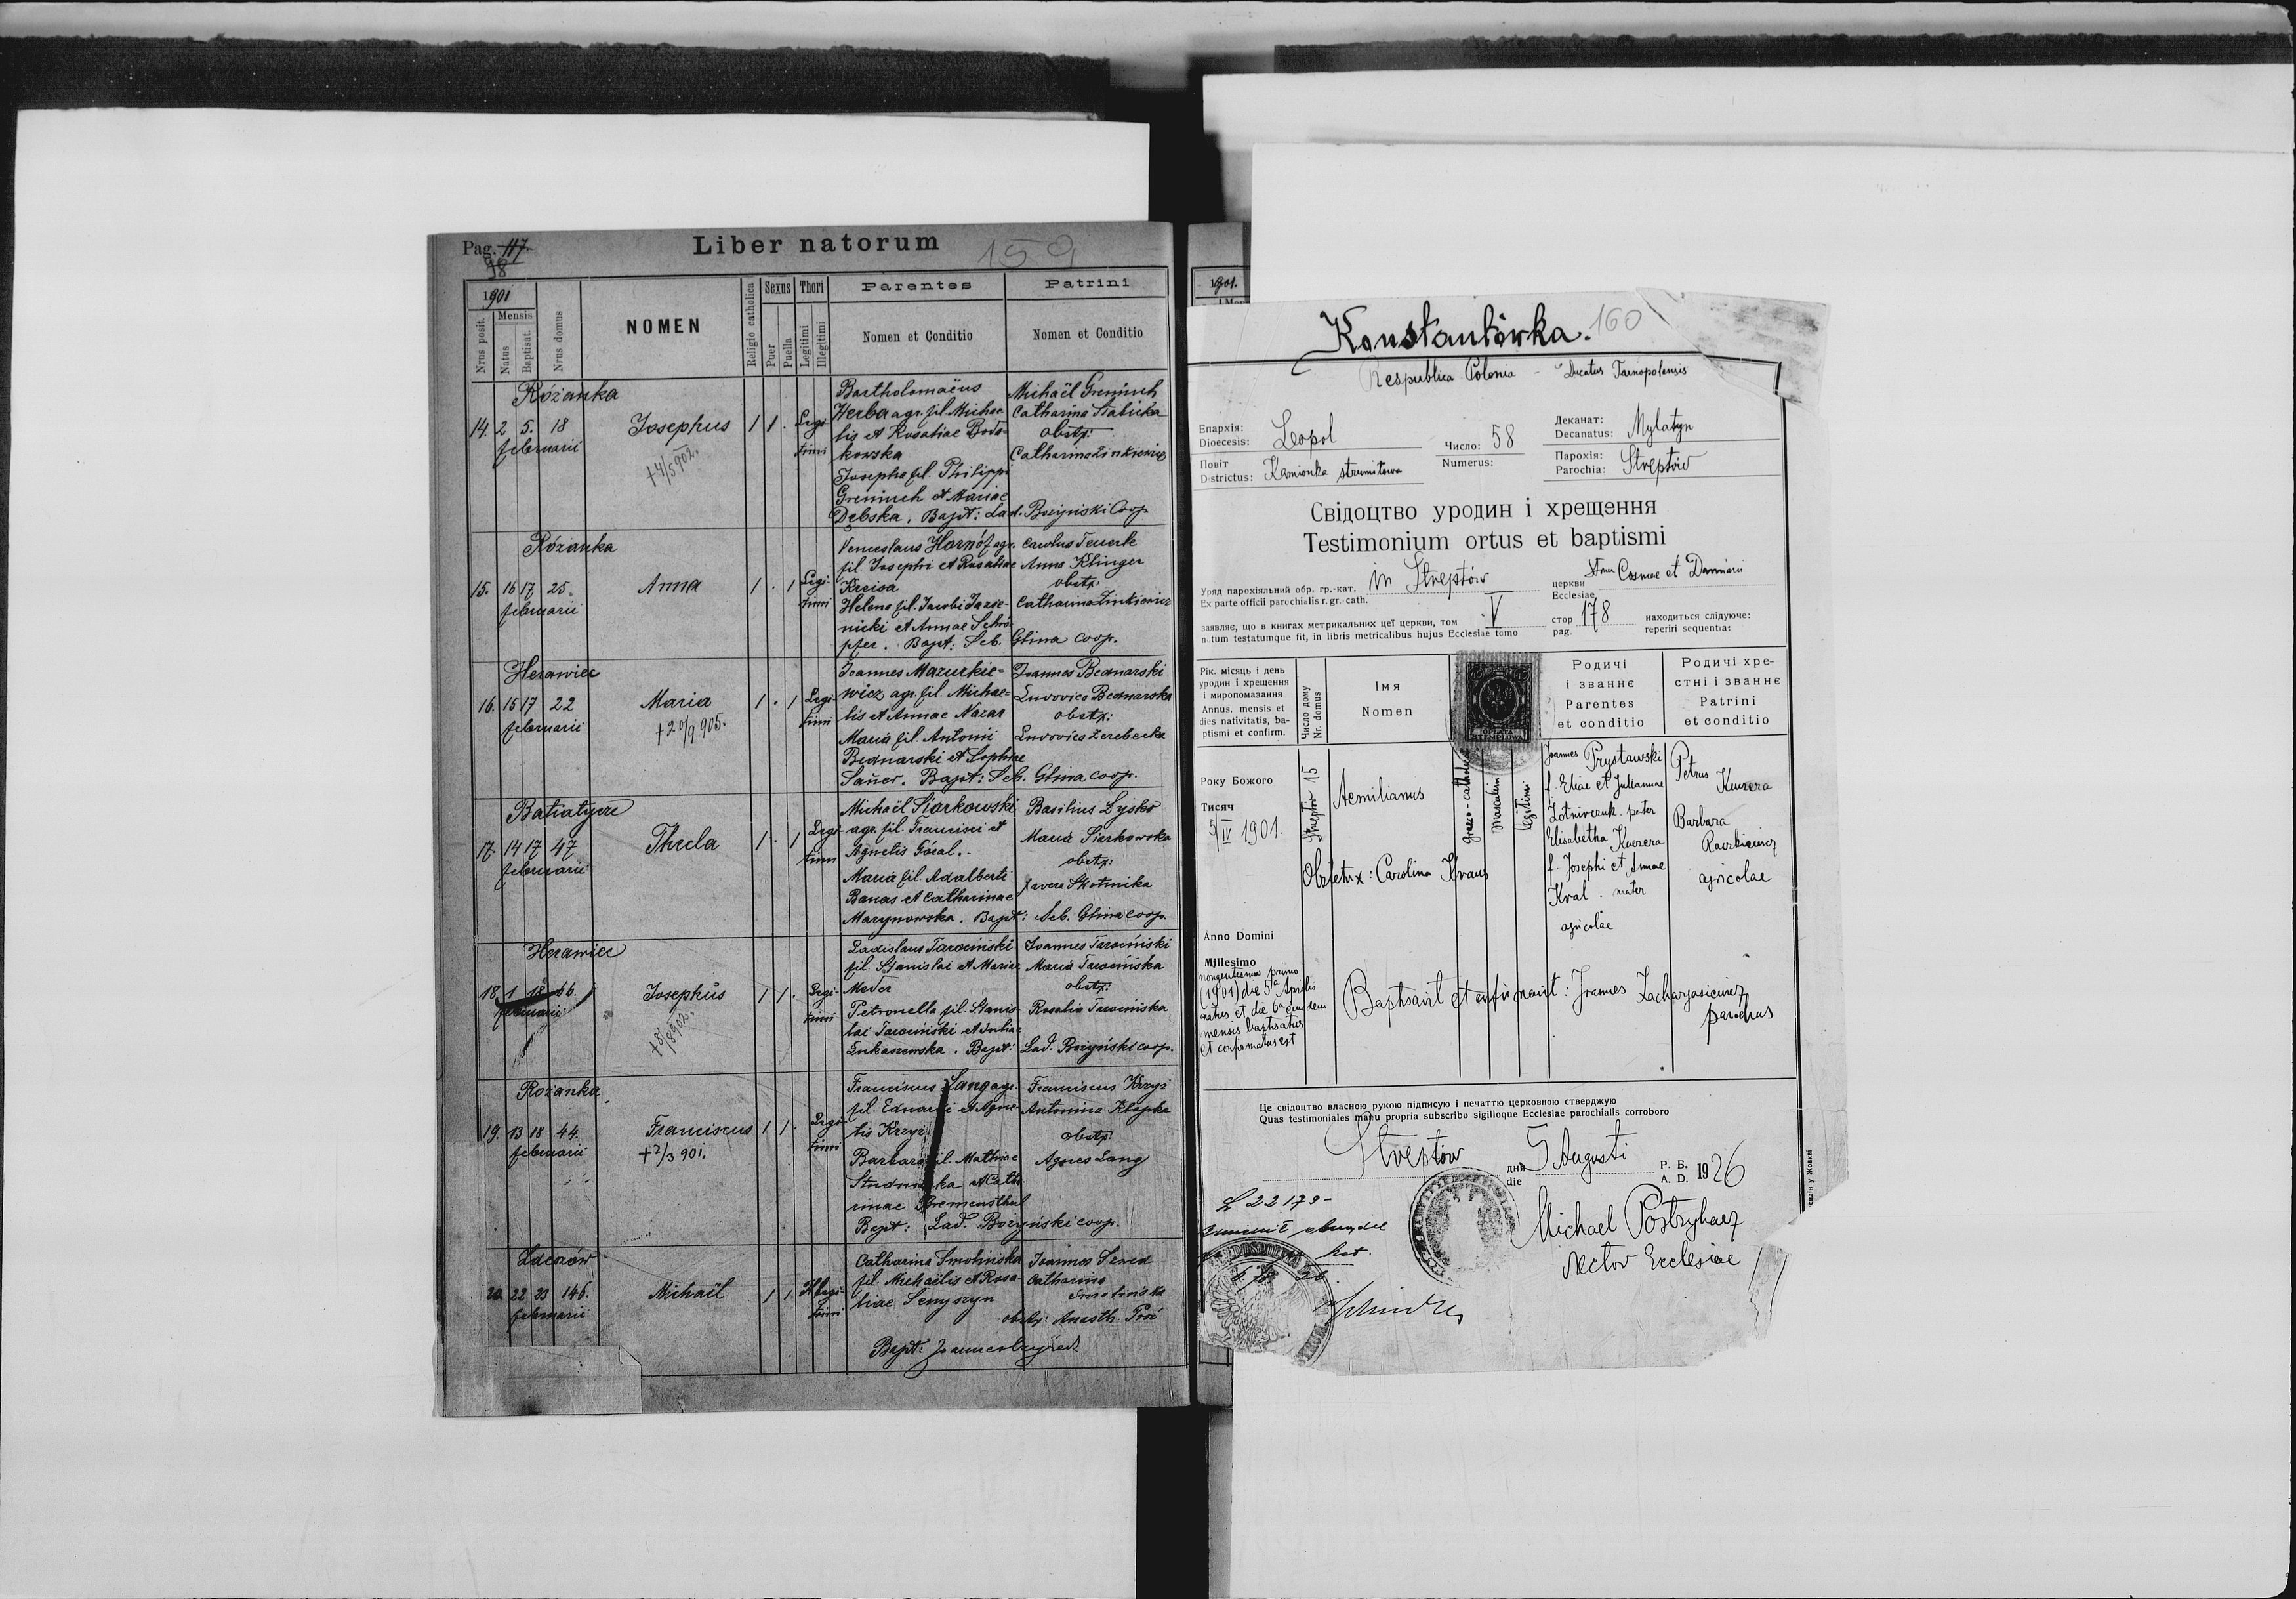 Pag. 117
98
Liber natorum
159
1901
Mensis
Nrus posit.
Natus
Baptisat.
Nrus domus
NOMEN
Religio catholica
Sexus
Puer
Puella
Thori
Legitimi
Illegitimi
Parentes
Nomen et Conditio
Patrini
Nomen et Conditio
Rózanka
14. 2 5. 18
februarii
Josephus
+4/5 902.
1 1 . Legi-
timi
Bartholomaëus
Herba agr. fil. Michae-
lis et Rosaliae Bodo-
kowska
Josepha fil. Philippi
Greniuch et Mariae
Dębska. Bapt: Lad. Bożyński Coop
Michaël Greniuch
Catharina
obstx:
Catharina Zinkiewicz
Rózanka
15. 16 17 25.
februarii
Anna
1 . 1 Legi-
timi
Venceslaus Hornóf agr.
fil. Josephi et Rosaliae
Kreisa
Helena fil. Jacobi Jazie-
nicki et Annae Schro-
pfer. Bapt: Seb. Glina coop.
Carolus Feuerk
Anna Klinger
obstx:
Catharina Zinkiewicz
Herawiec
16. 15 17 22
februarii
Maria
+20/9 905.
1 . 1 Legi-
timi
Joannes Mazurkie-
wicz agr. fil. Michae-
lis et Annae Nazar
Maria fil. Antonii
Bednarski et Sophiae
Sauer. Bapt: Seb. Glina coop.
Joannes Bednarski
Ludovica Bednarska
obstx:
Ludovica Zerebecka
Batiatycze
17. 14 17 47
februarii
Thecla
1 . 1 Legi-
timi
Michaël Siarkowski
agr. fil. Francisci et
Agnetis Góral.
Maria fil. Adalberti
Banas et Catharinae
Marynowska. Bapt: Seb. Glina coop.
Basilius Lysko
Maria Siarkowska
obstx:
Xavera Skotnicka
Herawiec
18. 1 18 66.
februarii
Josephus
+8/8 902.
1 1 . Legi-
timi
Ladislaus Tarociński
fil. Stanislai et Mariae
Meder
Petronella fil. Stanis-
lai Tarociński et Juliae
Lukaszewska. Bapt: Lad. Bożyński coop.
Joannes Tarociński
Maria Tarocińska
obstx:
Rosalia Tarocińska
Rózanka
19. 13 18 44.
februarii
Franciscus
+2/3 901.
1 1 . Legi-
timi
Franciscus Lang agr.
fil. Eduardi et Agne-
tis Krzyż
Barbara fil. Mathiae
et Catha-
rinae
Bapt: Lad. Bożyński coop.
Franciscus Krzyż
Antonina Kłapka
obstx:
Agnes Lang
20. 22 23 146.
februarii
Michaël
1 1. Illegi-
timi
Catharina Smolińska
fil. Michaëlis et Rosa-
liae Senyszyn
Joannes
Catharina
Smolińska
obstx: Anasth.
Bapt: Joannes
1901.
Konstantówka.
160
Respublica Polonia - Ducatus Tarnopolensis
Епархія:
Dioecesis: Leopol
Число: 58
Numerus:
Деканат:
Decanatus: Mylatyn
Повіт
Districtus: Kamionka strumiłowa
Парохія:
Parochia: Streptów
Свідоцтво уродин і хрещення
Testimonium ortus et baptismi
Уряд парохіяльний обр. гр.-кат. in Streptów церкви Stor. Cosmae et Damiani
Ex parte officii parochialis r. gr. cath. Ecclesiae
заявляє, що в книгах метрикальних цеї церкви, том V стор 178 находиться слідуюче:
notum testatumque fit, in libris metricalibus hujus Ecclesiae tomo pag. reperiri sequentia:
Рік. місяць і день
уродин і хрещення
і миропомазання
Annus, mensis et
dies nativitatis, ba-
ptismi et confirm.
Число дому
Nr. domus
Імя
Nomen
Родичі
і званнє
Parentes
et conditio
Родичі хре-
стні і званнє
Patrini
et conditio
Року Божого
Тисяч
5/IV 1901.
Streptów 15
Aemilianus
graeco-catholica
masculin
legitimi
Joannes Prystawski
f. Eliae et Julianae
Żotniverzuk. pater
Elisabetha Kuczera
f. Josephi et Annae
Kral. mater
agricolae
Petrus Kuczera
Barbara
Raczkiewicz
agricolae
Obstetrix: Carolina Kraus
Anno Domini
Millesimo
nongentesimo primo
(1901) die 5ᵃ Aprilis
natus et die 6ᵃ ejusdem
mensis baptisatus
et confirmatus est
Baptisavit et confirmavit: Joannes Zacharjasiewicz
parochus
Це свідоцтво власною рукою підписую і печаттю церковною стверджую
Quas testimoniales manu propria subscribo sigilloque Ecclesiae parochialis corroboro
Streptów дня 5 Augusti Р. Б. 1926
die A. D.
L 22179-
Michael Postryhacz
Rector Ecclesiae